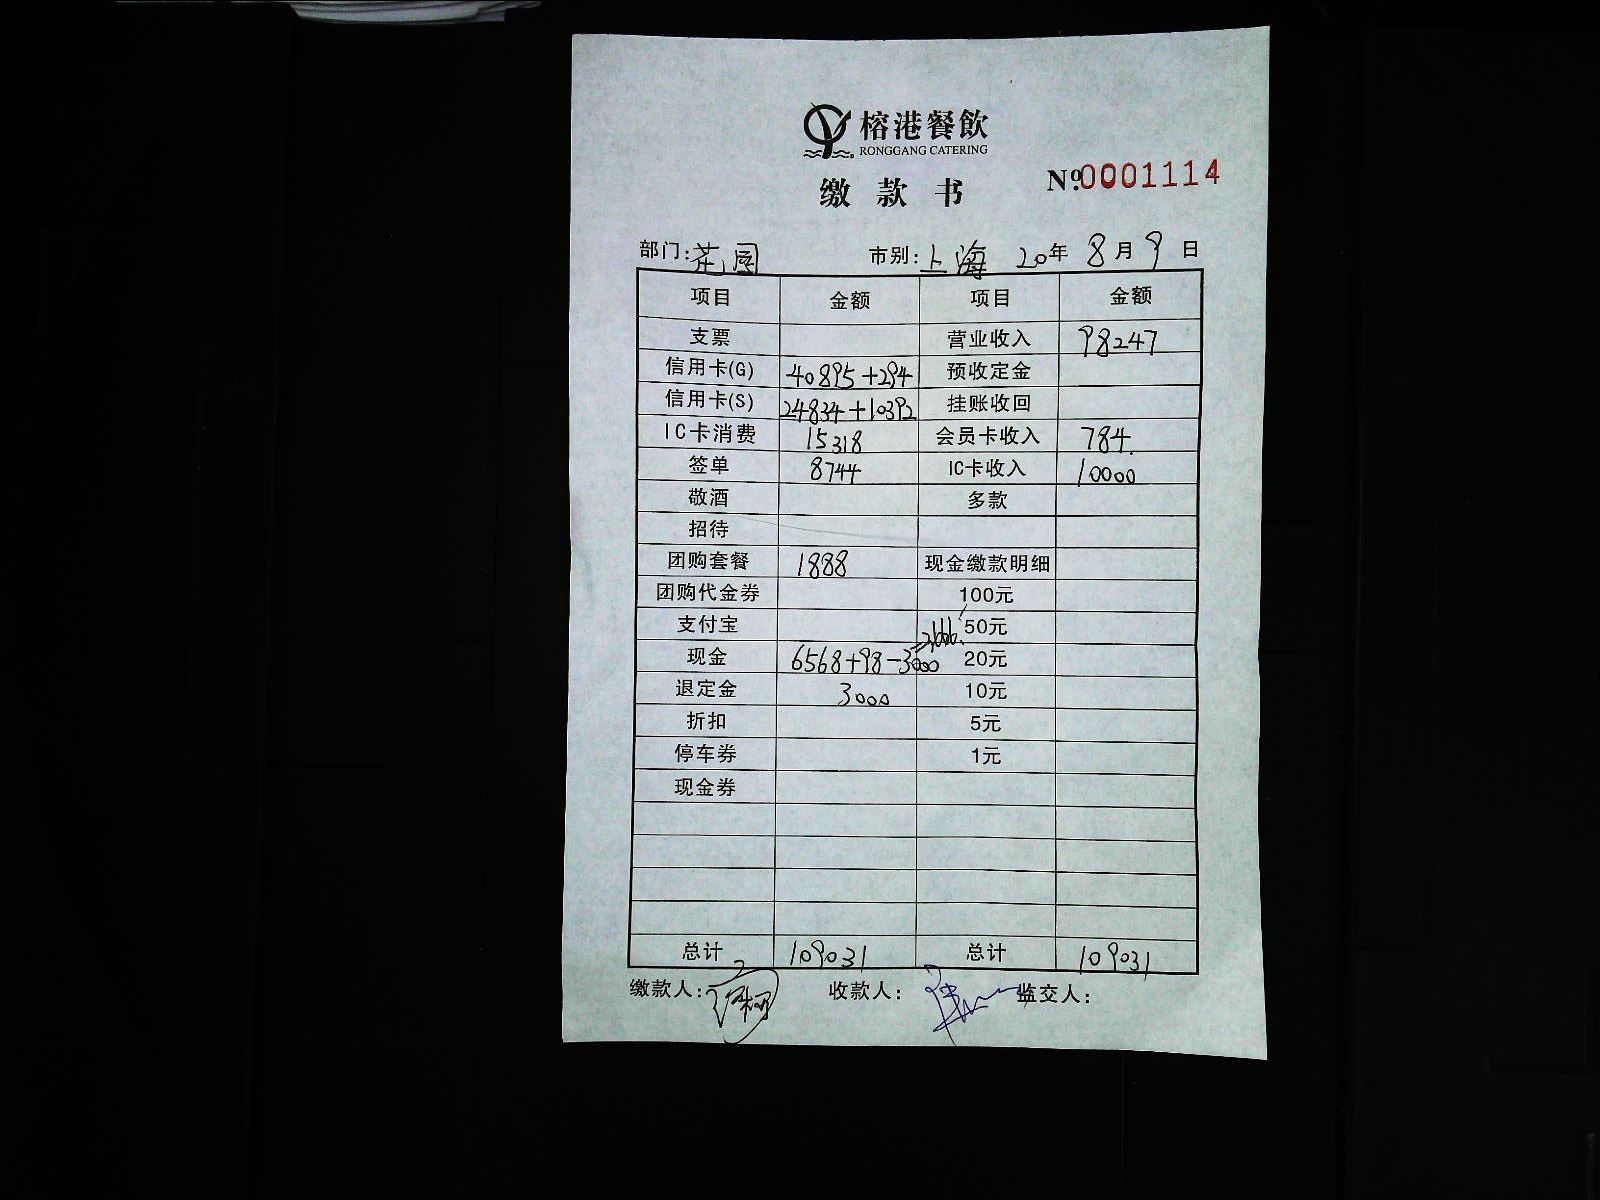 榕港餐飲
RONGGANG CATERING
缴款书
Nº0001114
部门:花园 市别:上海 20年8月9日
项目 金额 项目 金额
支票 营业收入 98247
信用卡(G) 40895+294 预收定金
信用卡(S) 24834+10392 挂账收回
IC卡消费 15318 会员卡收入 784.
签单 8744 IC卡收入 10000
敬酒 多款
招待
团购套餐 1888 现金缴款明细
团购代金券 100元
支付宝 50元
现金 6568+98-3000 20元
退定金 3000 10元
折扣 5元
停车券 1元
现金券
总计 109031 总计 109031
缴款人: 收款人: 监交人: